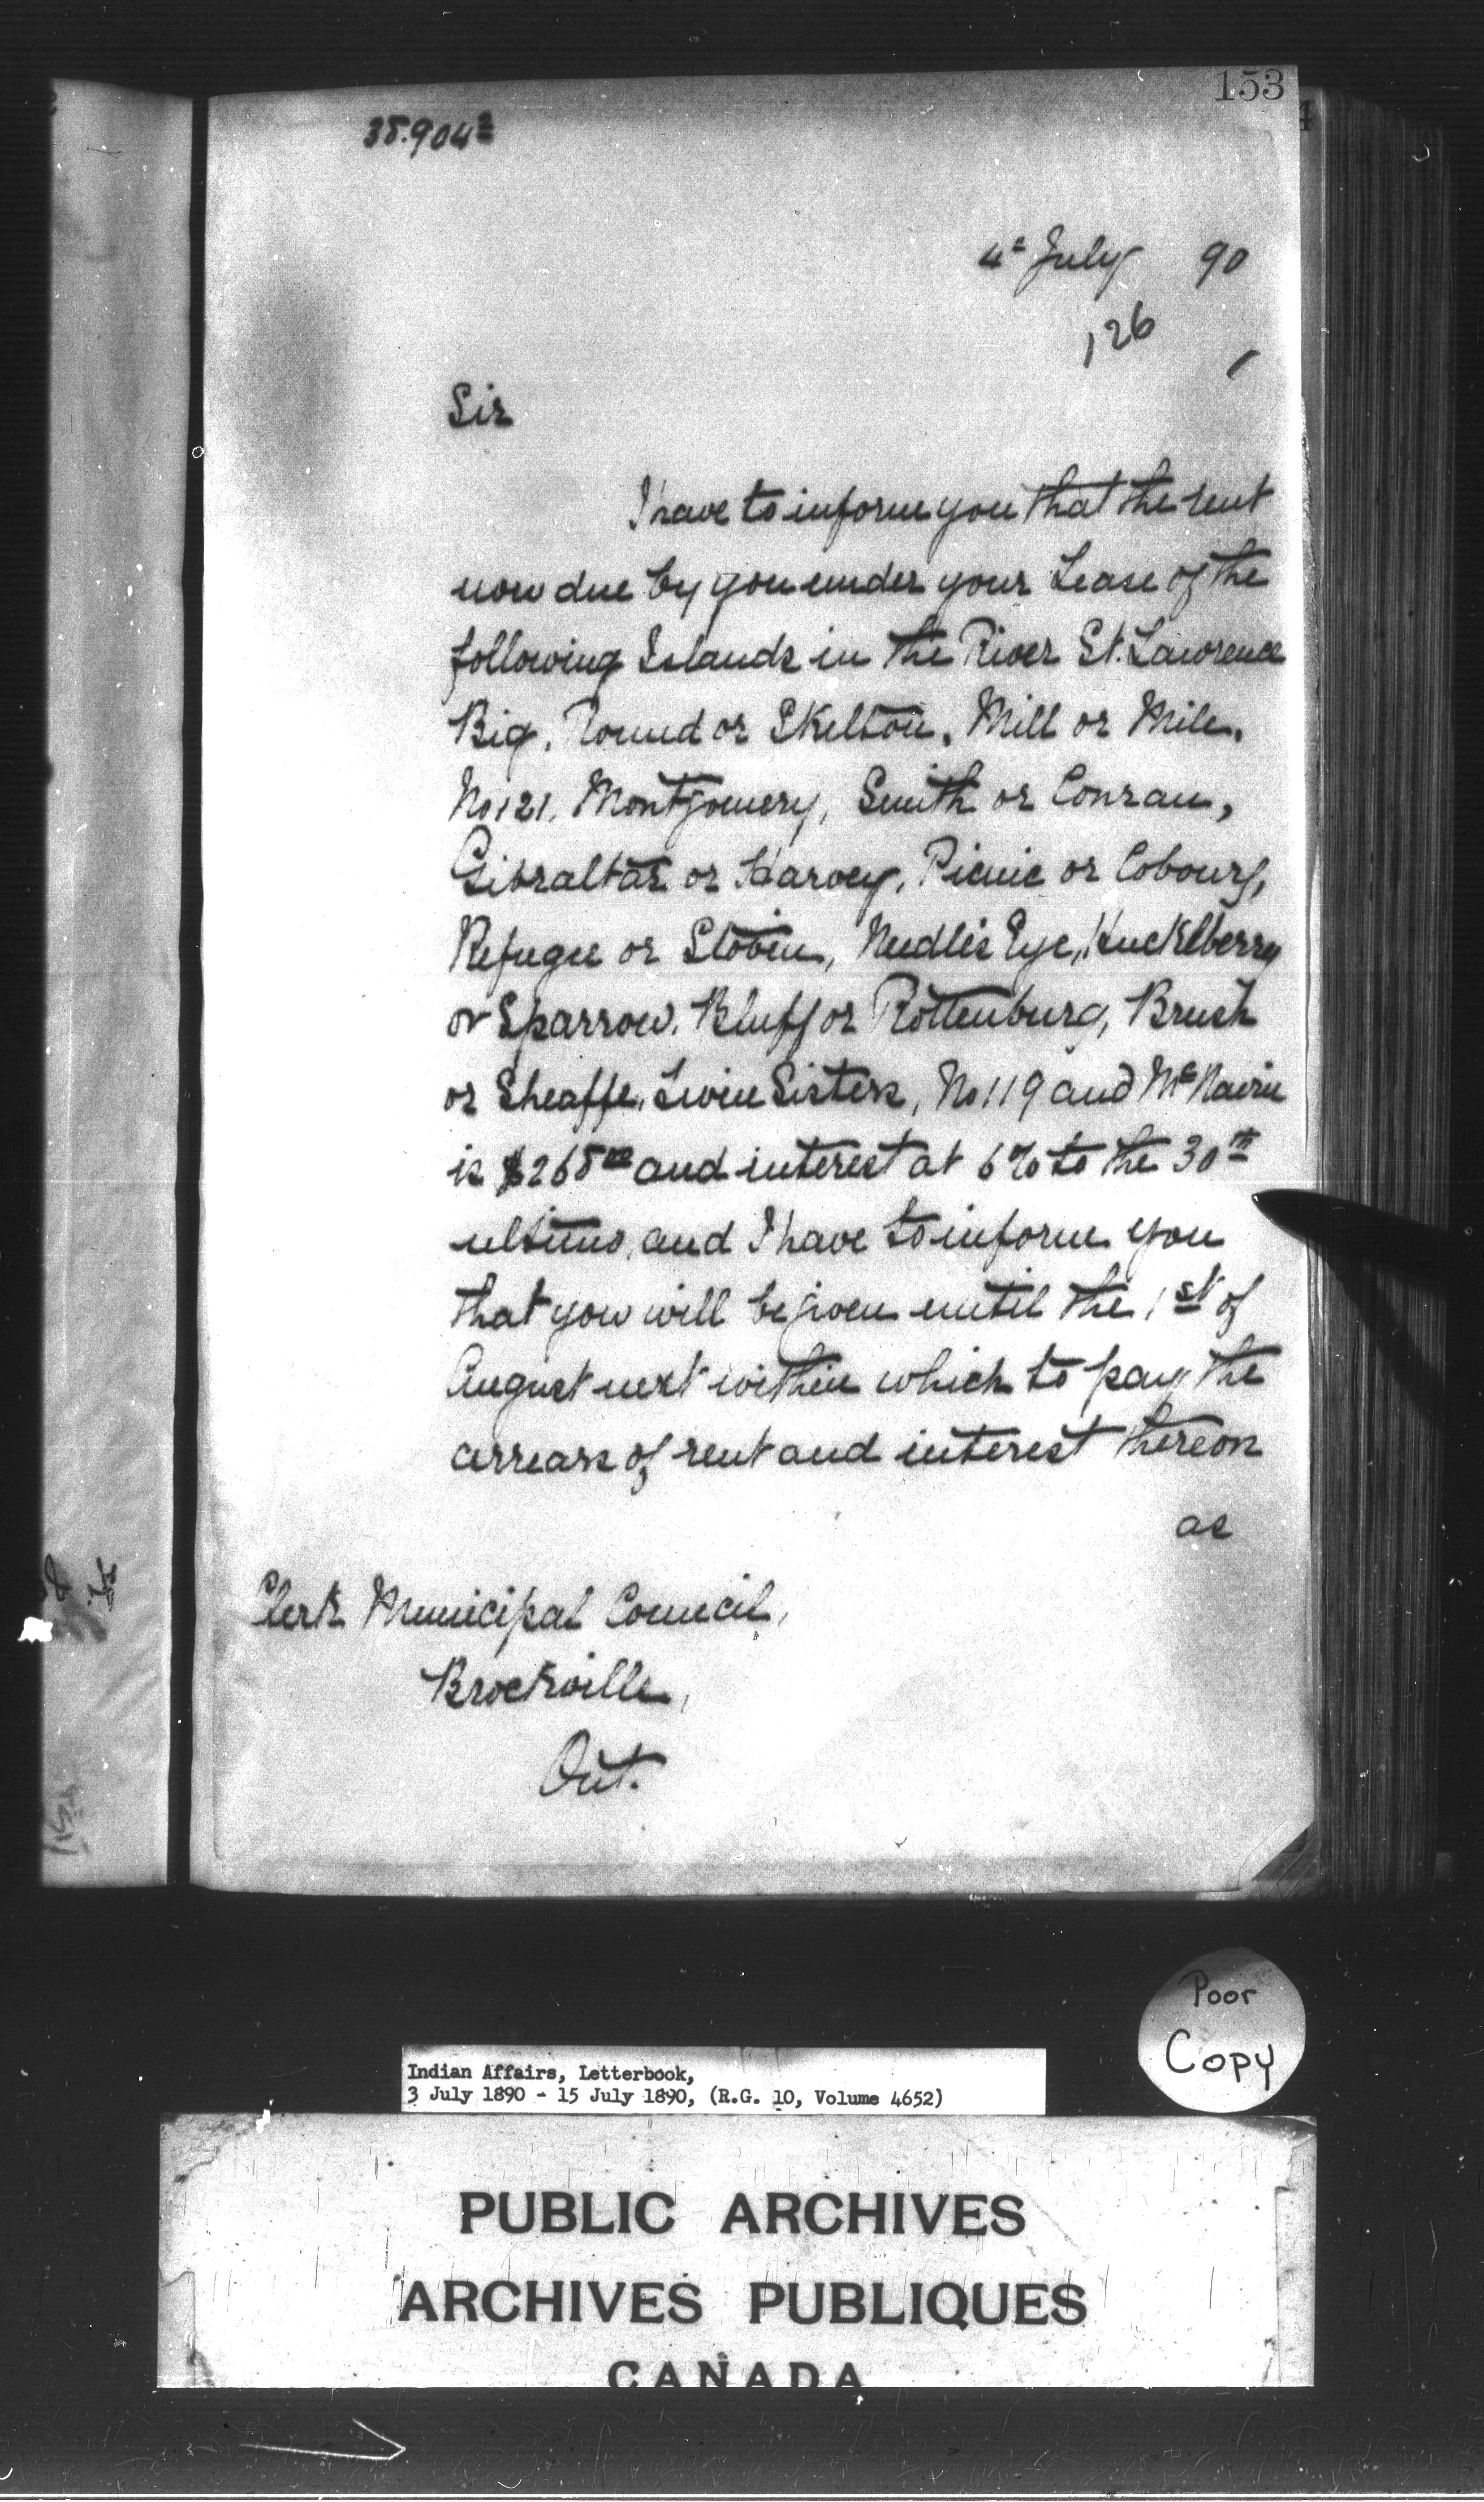 153
4
4th July 90
126
Sir
I have to inform you that the rent
now due by you under your Lease of the
following Islands in the River St. Lawrence
Big, Round or Skelton, Mill or Mile,
No 121, Montgomery, Smith or Conran,
Gibraltar or Harvey, Picnic or Cobourg,
Refugee or Stovin, Needle's Eye, Huckelberry
or Sparrow, Bluff or Rottenburg, Brush
or Sheaffe, Twin Sisters, No 119 and McNairn
is and interest at 6% to the 30th
ultimo, and I have to inform you
that you will be given until the 1st of
August next within which to pay the
arrears of rent and interest thereon
as
Clerk Municipal Council,
Brockville,
Ont.
Poor
Copy
Indian Affairs, Letterbook,
3 July 1890 - 15 July 1890, (R.G. 10, Volume 4652)
PUBLIC ARCHIVES
ARCHIVES PUBLIQUES
CANADA